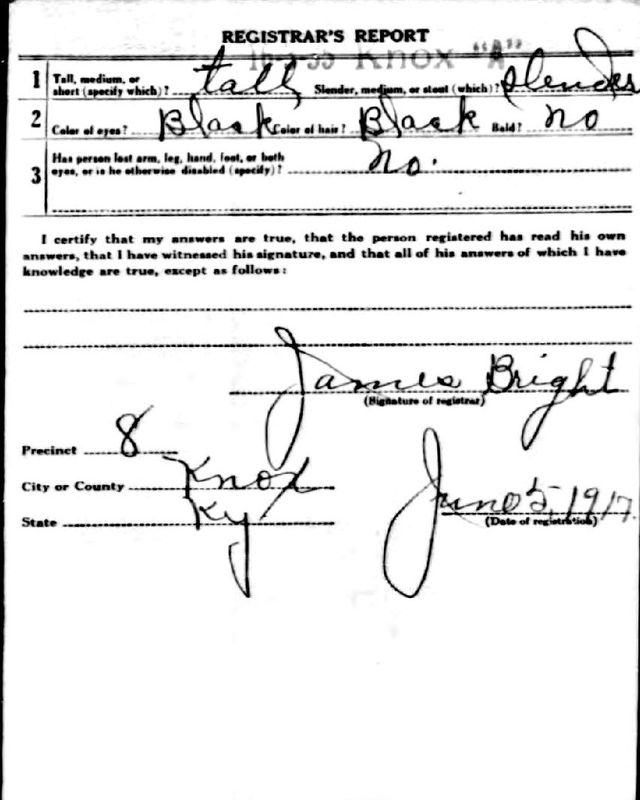 REGISTRAR'S REPORT
Knox "A"
1 Tall, medium, or
short (specify which)? tall Slender, medium, or stout (which)? slender
2 Color of eyes? Black Color of hair? Black Bald? no
3 Has person lost arm, leg, hand, foot, or both
eyes, or is he otherwise disabled (specify)? no.
I certify that my answers are true, that the person registered has read his own
answers, that I have witnessed his signature, and that all of his answers of which I have
knowledge are true, except as follows:
James Bright
(Signature of registrar)
Precinct 8
City or County Knox
State Ky
June 5, 1917.
(Date of registration)